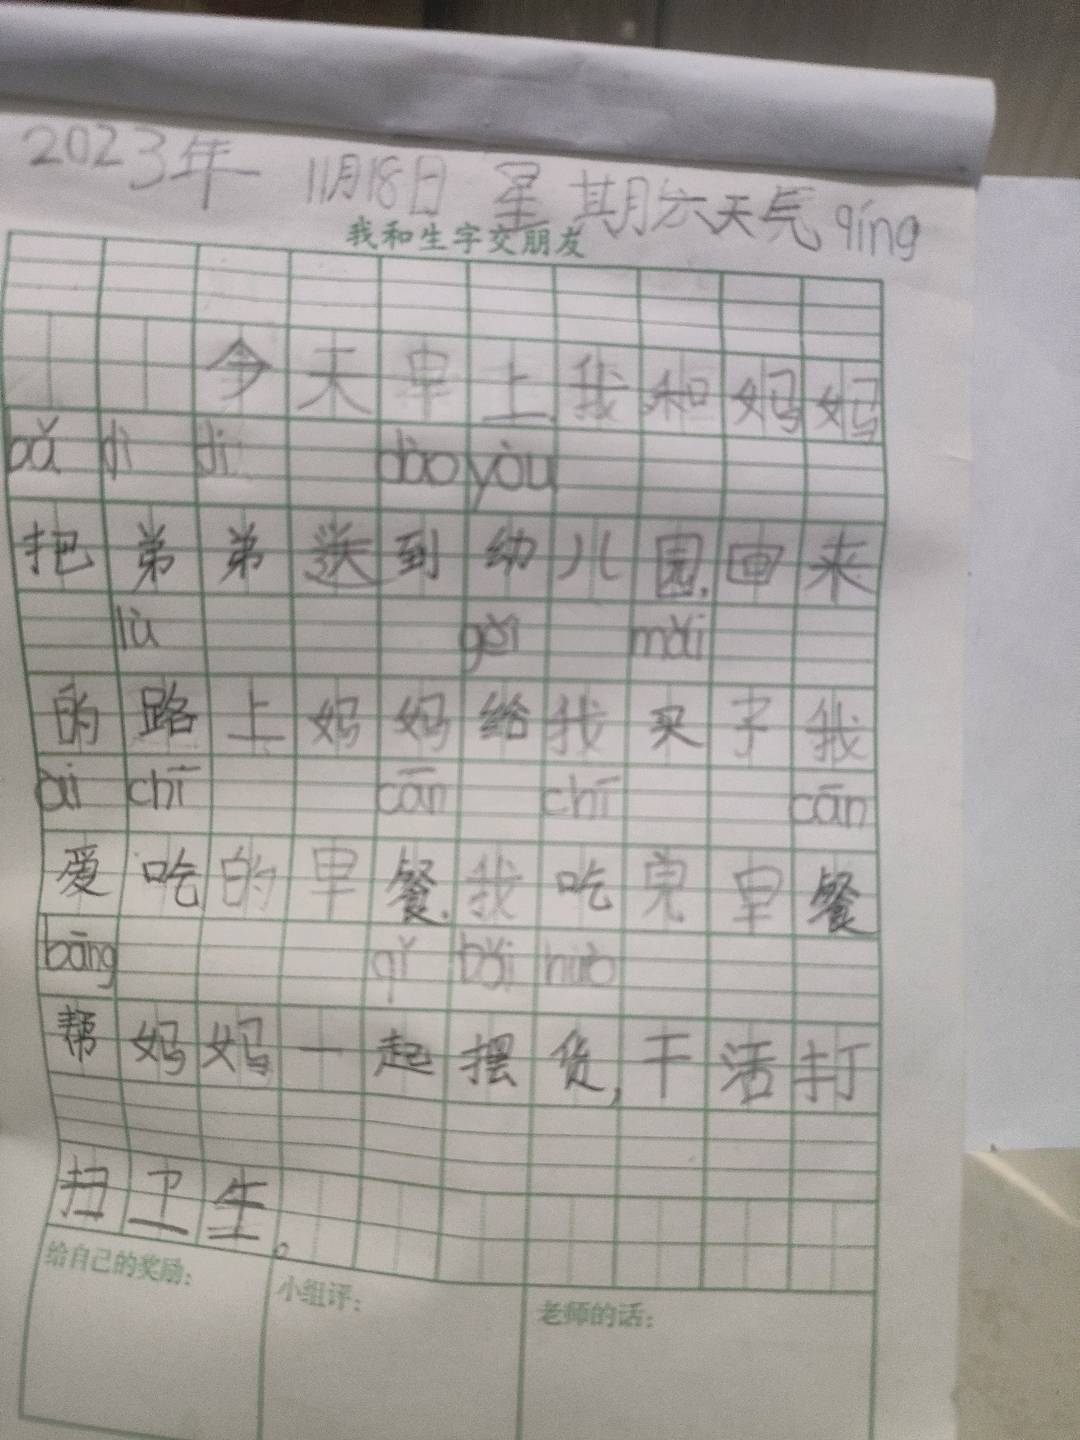 2023年 11月18日 星期六天气qíng
我和生字交朋友
今天早上,我和妈妈
bǎ dì di dào yòu
把弟弟送到幼儿园,回来
lù gěi mǎi
的路上妈妈给我买了我
ài chī cān chī cān
爱吃的早餐.我吃完早餐
bāng qǐ bǎi huò
帮妈妈一起摆货,干活打
扫卫生。
给自己的奖励:
小组评:
老师的话: